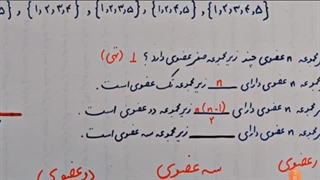 ۵} , {۱,۲,۳,۴} , {۱,۲,۳,۵} , {۱,۲,۴,۵} , {۱,۳,۴,۵}
مجموعه n عضوی چند زیرمجموعه صفر عضوی دارد؟ ۱ (تهی)
مجموعه n عضوی دارای n زیرمجموعه تک عضوی است.
مجموعه n عضوی دارای n(n-1)/۲ زیرمجموعه دو عضوی است.
n عضوی دارای ــــــ زیرمجموعه سه عضوی است.
عضوی سه عضوی دو عضوی